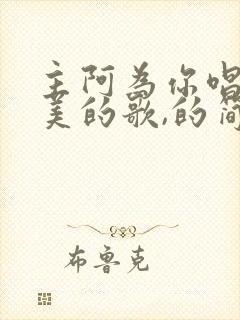 主阿为你唱
美的歌,的简
布鲁克